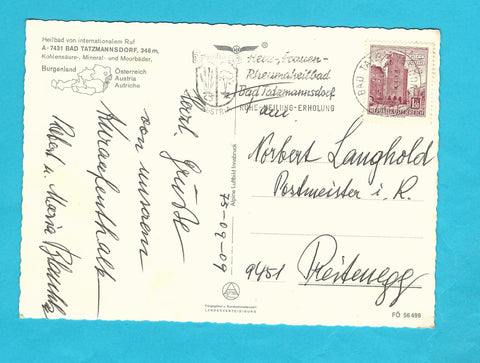 Heilbad von internationalem Ruf
A-7431 BAD TATZMANNSDORF, 346 m,
Kohlensäure-, Mineral- und Moorbäder,
Burgenland
Österreich
Austria
Autriche
Herz-, Frauen-
Rheumaheilbad
Bad Tatzmannsdorf
RUHE-HEILUNG-ERHOLUNG
BAD TATZ
REPUBLIK ÖSTERREICH
Herzl. Grüße
von unserem
Kuraufenthalt
Robert u. Maria
75-09-09
Alpine Luftbild Innsbruck
Norbert Langhold
Postmeister i. R.
9451 Preitenegg
LANDESVERTEIDIGUNG
FÖ 56496